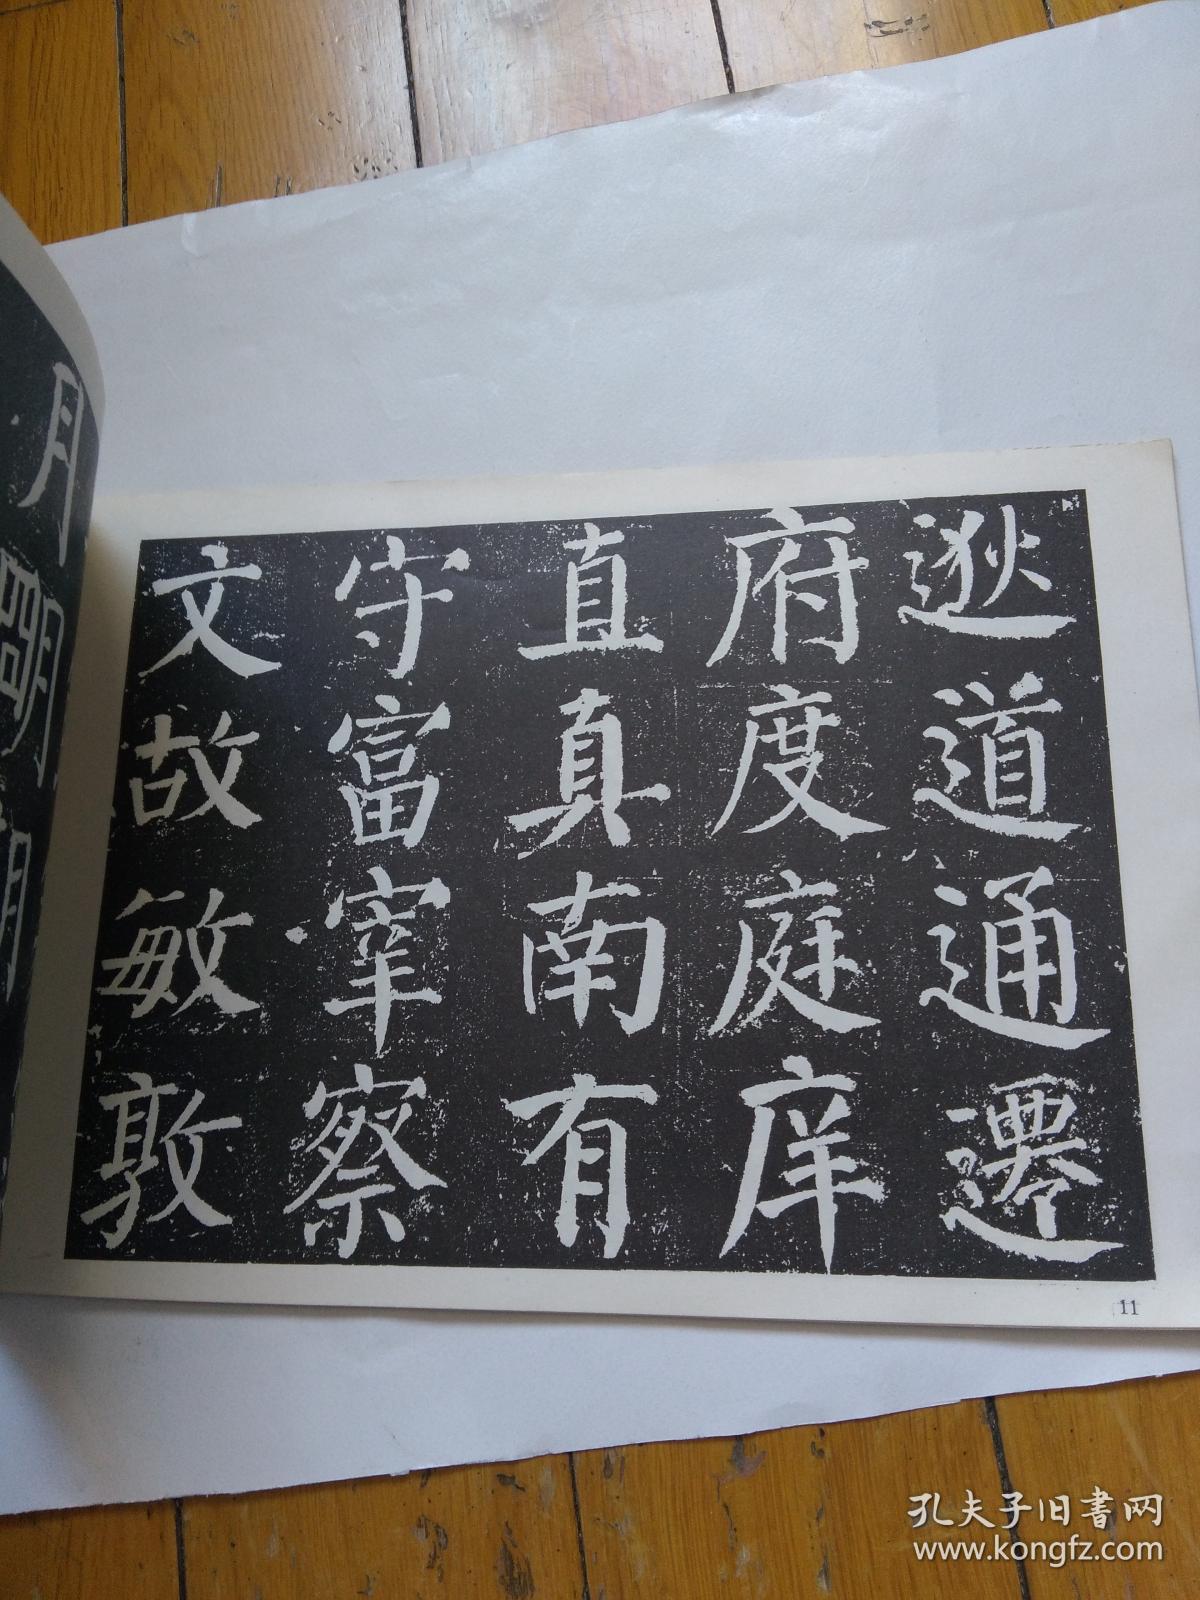 逖道通遷
府度庭庠
直真南有
守富宰察
文故敏敦
月明
11
孔夫子旧書网
www.kongfz.com